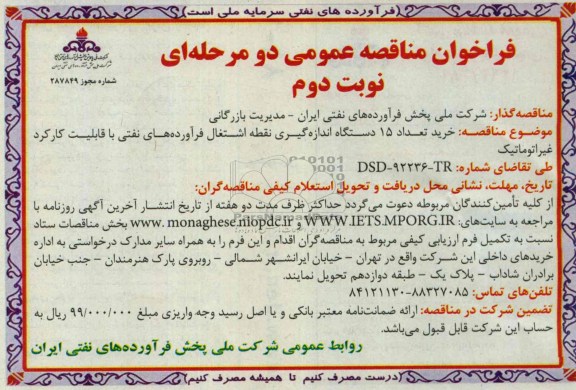 (فرآورده های نفتی سرمایه ملی است)
فراخوان مناقصه عمومی دو مرحله‌ای
نوبت دوم
شماره مجوز ۲۸۷۸۴۹
مناقصه‌گذار: شرکت ملی پخش فرآورده‌های نفتی ایران - مدیریت بازرگانی
موضوع مناقصه: خرید تعداد ۱۵ دستگاه اندازه‌گیری نقطه اشتغال فرآورده‌های نفتی با قابلیت کارکرد
غیراتوماتیک
طی تقاضای شماره: DSD-۹۲۲۳۶-TR
تاریخ، مهلت، نشانی محل دریافت و تحویل استعلام کیفی مناقصه‌گران:
از کلیه تأمین‌کنندگان مربوطه دعوت می‌گردد حداکثر ظرف مدت دو هفته از تاریخ انتشار آخرین آگهی روزنامه با
مراجعه به سایت‌های: WWW.IETS.MPORG.IR و www.monaghese.niopdc.ir بخش مناقصات ستاد
نسبت به تکمیل فرم ارزیابی کیفی مربوط به مناقصه‌گران اقدام و این فرم را به همراه سایر مدارک درخواستی به اداره
خریدهای داخلی این شرکت واقع در تهران - خیابان ایرانشهر شمالی - روبروی پارک هنرمندان - جنب خیابان
برادران شاداب - پلاک یک - طبقه دوازدهم تحویل نمایند.
تلفن‌های تماس: ۸۸۳۲۷۰۸۵-۸۴۱۲۱۱۳۰
تضمین شرکت در مناقصه: ارائه ضمانت‌نامه معتبر بانکی و یا اصل رسید وجه واریزی مبلغ ۹۹/۰۰۰/۰۰۰ ریال به
حساب این شرکت قابل قبول می‌باشد.
روابط عمومی شرکت ملی پخش فرآورده‌های نفتی ایران
(درست مصرف کنیم تا همیشه مصرف کنیم)